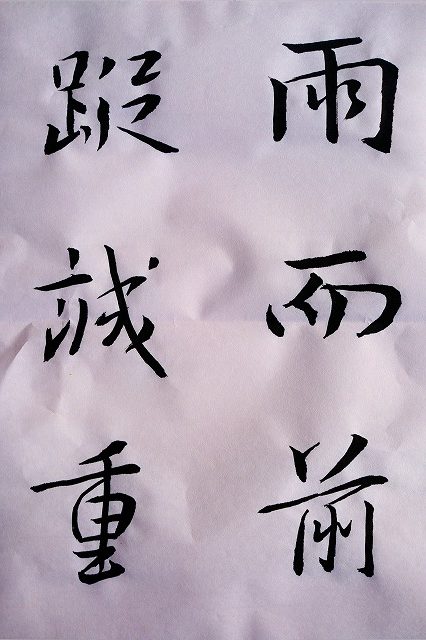 雨而前
蹤誠重